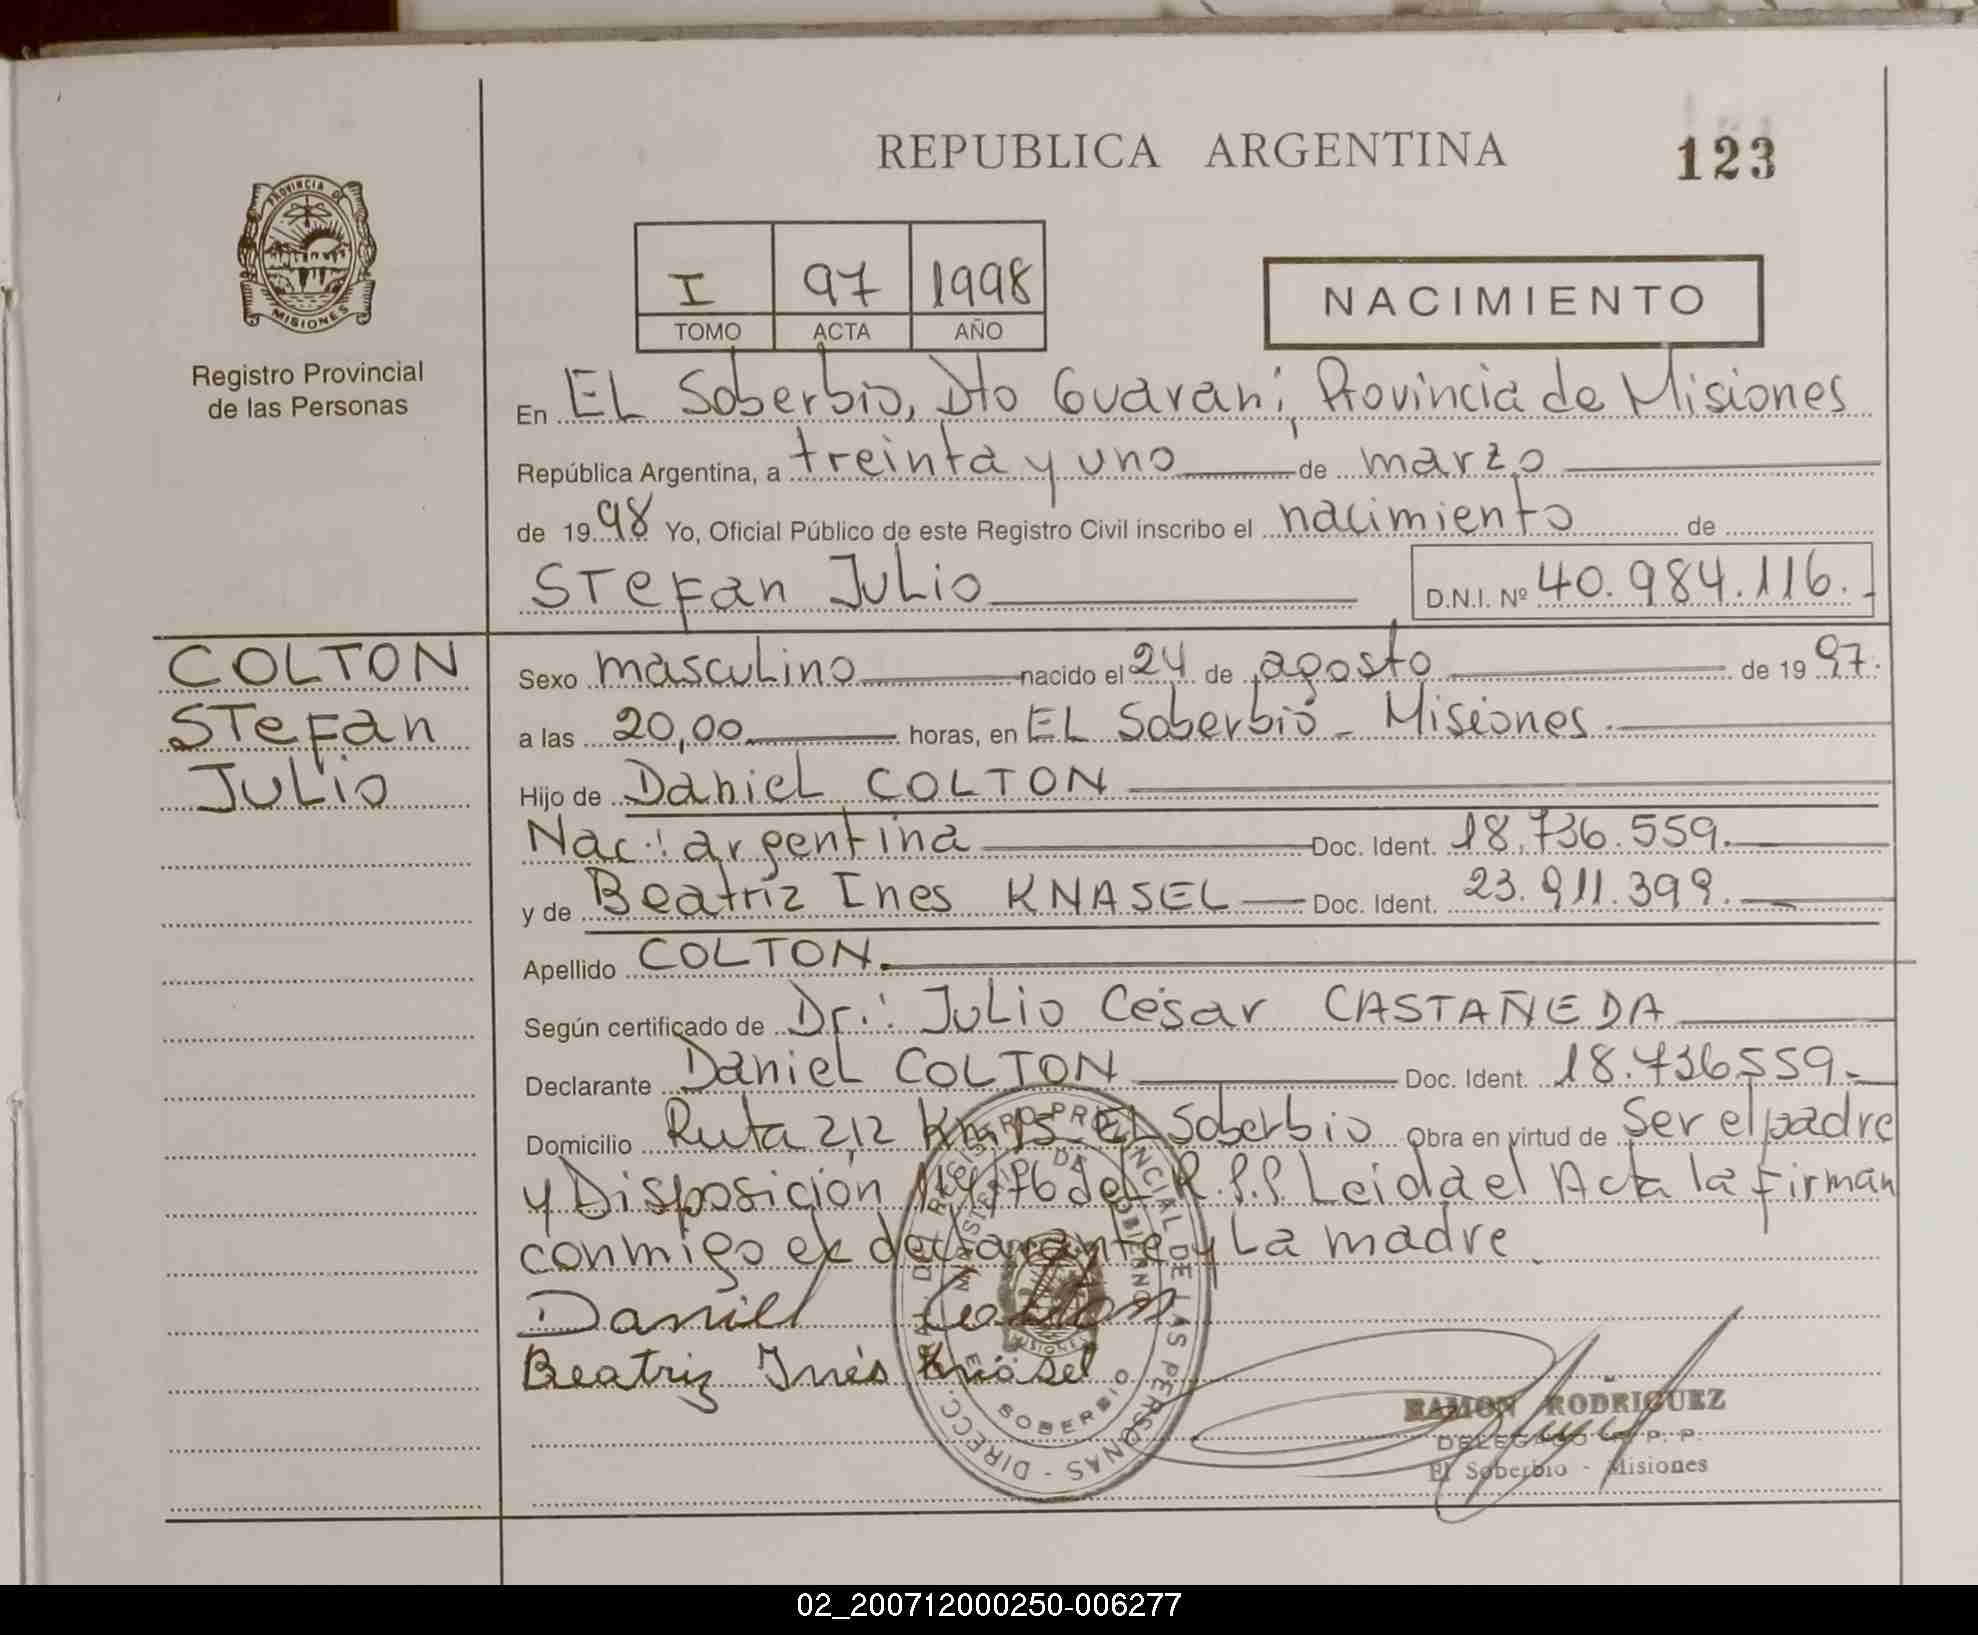 REPUBLICA ARGENTINA
123
PROVINCIA DE
MISIONES
Registro Provincial
de las Personas
I 97 1998
TOMO ACTA AÑO
NACIMIENTO
En EL Soberbio, Dto Guaraní, Provincia de Misiones
República Argentina, a treinta y uno de marzo
de 1998 Yo, Oficial Público de este Registro Civil inscribo el nacimiento de
Stefan Julio
D.N.I. Nº 40.984.116.-
COLTON
Stefan
Julio
Sexo masculino nacido el 24 de agosto de 1997.
a las 20,00 horas, en EL Soberbio - Misiones.
Hijo de Daniel COLTON
Nac.: argentina Doc. Ident. 18.736.559.
y de Beatriz Ines KNASEL Doc. Ident. 23.911.399.
Apellido COLTON.
Según certificado de Dr.: Julio César CASTAÑEDA
Declarante Daniel COLTON Doc. Ident. 18.736559.-
Domicilio Ruta 212 Km 15 EL Soberbio Obra en virtud de Ser el padre
y Disposición 114/76 del R.P.P. Leida el Acta la firman
conmigo el declarante y La madre.
Daniel Colton
Beatriz Inés Knasel
DIRECC. GRAL. DEL REGISTRO PROVINCIAL DE LAS PERSONAS
MINISTERIO DE GOBIERNO
MISIONES
EL SOBERBIO
RAMON RODRIGUEZ
DELEGADO R. P. P.
El Soberbio - Misiones
02_200712000250-006277